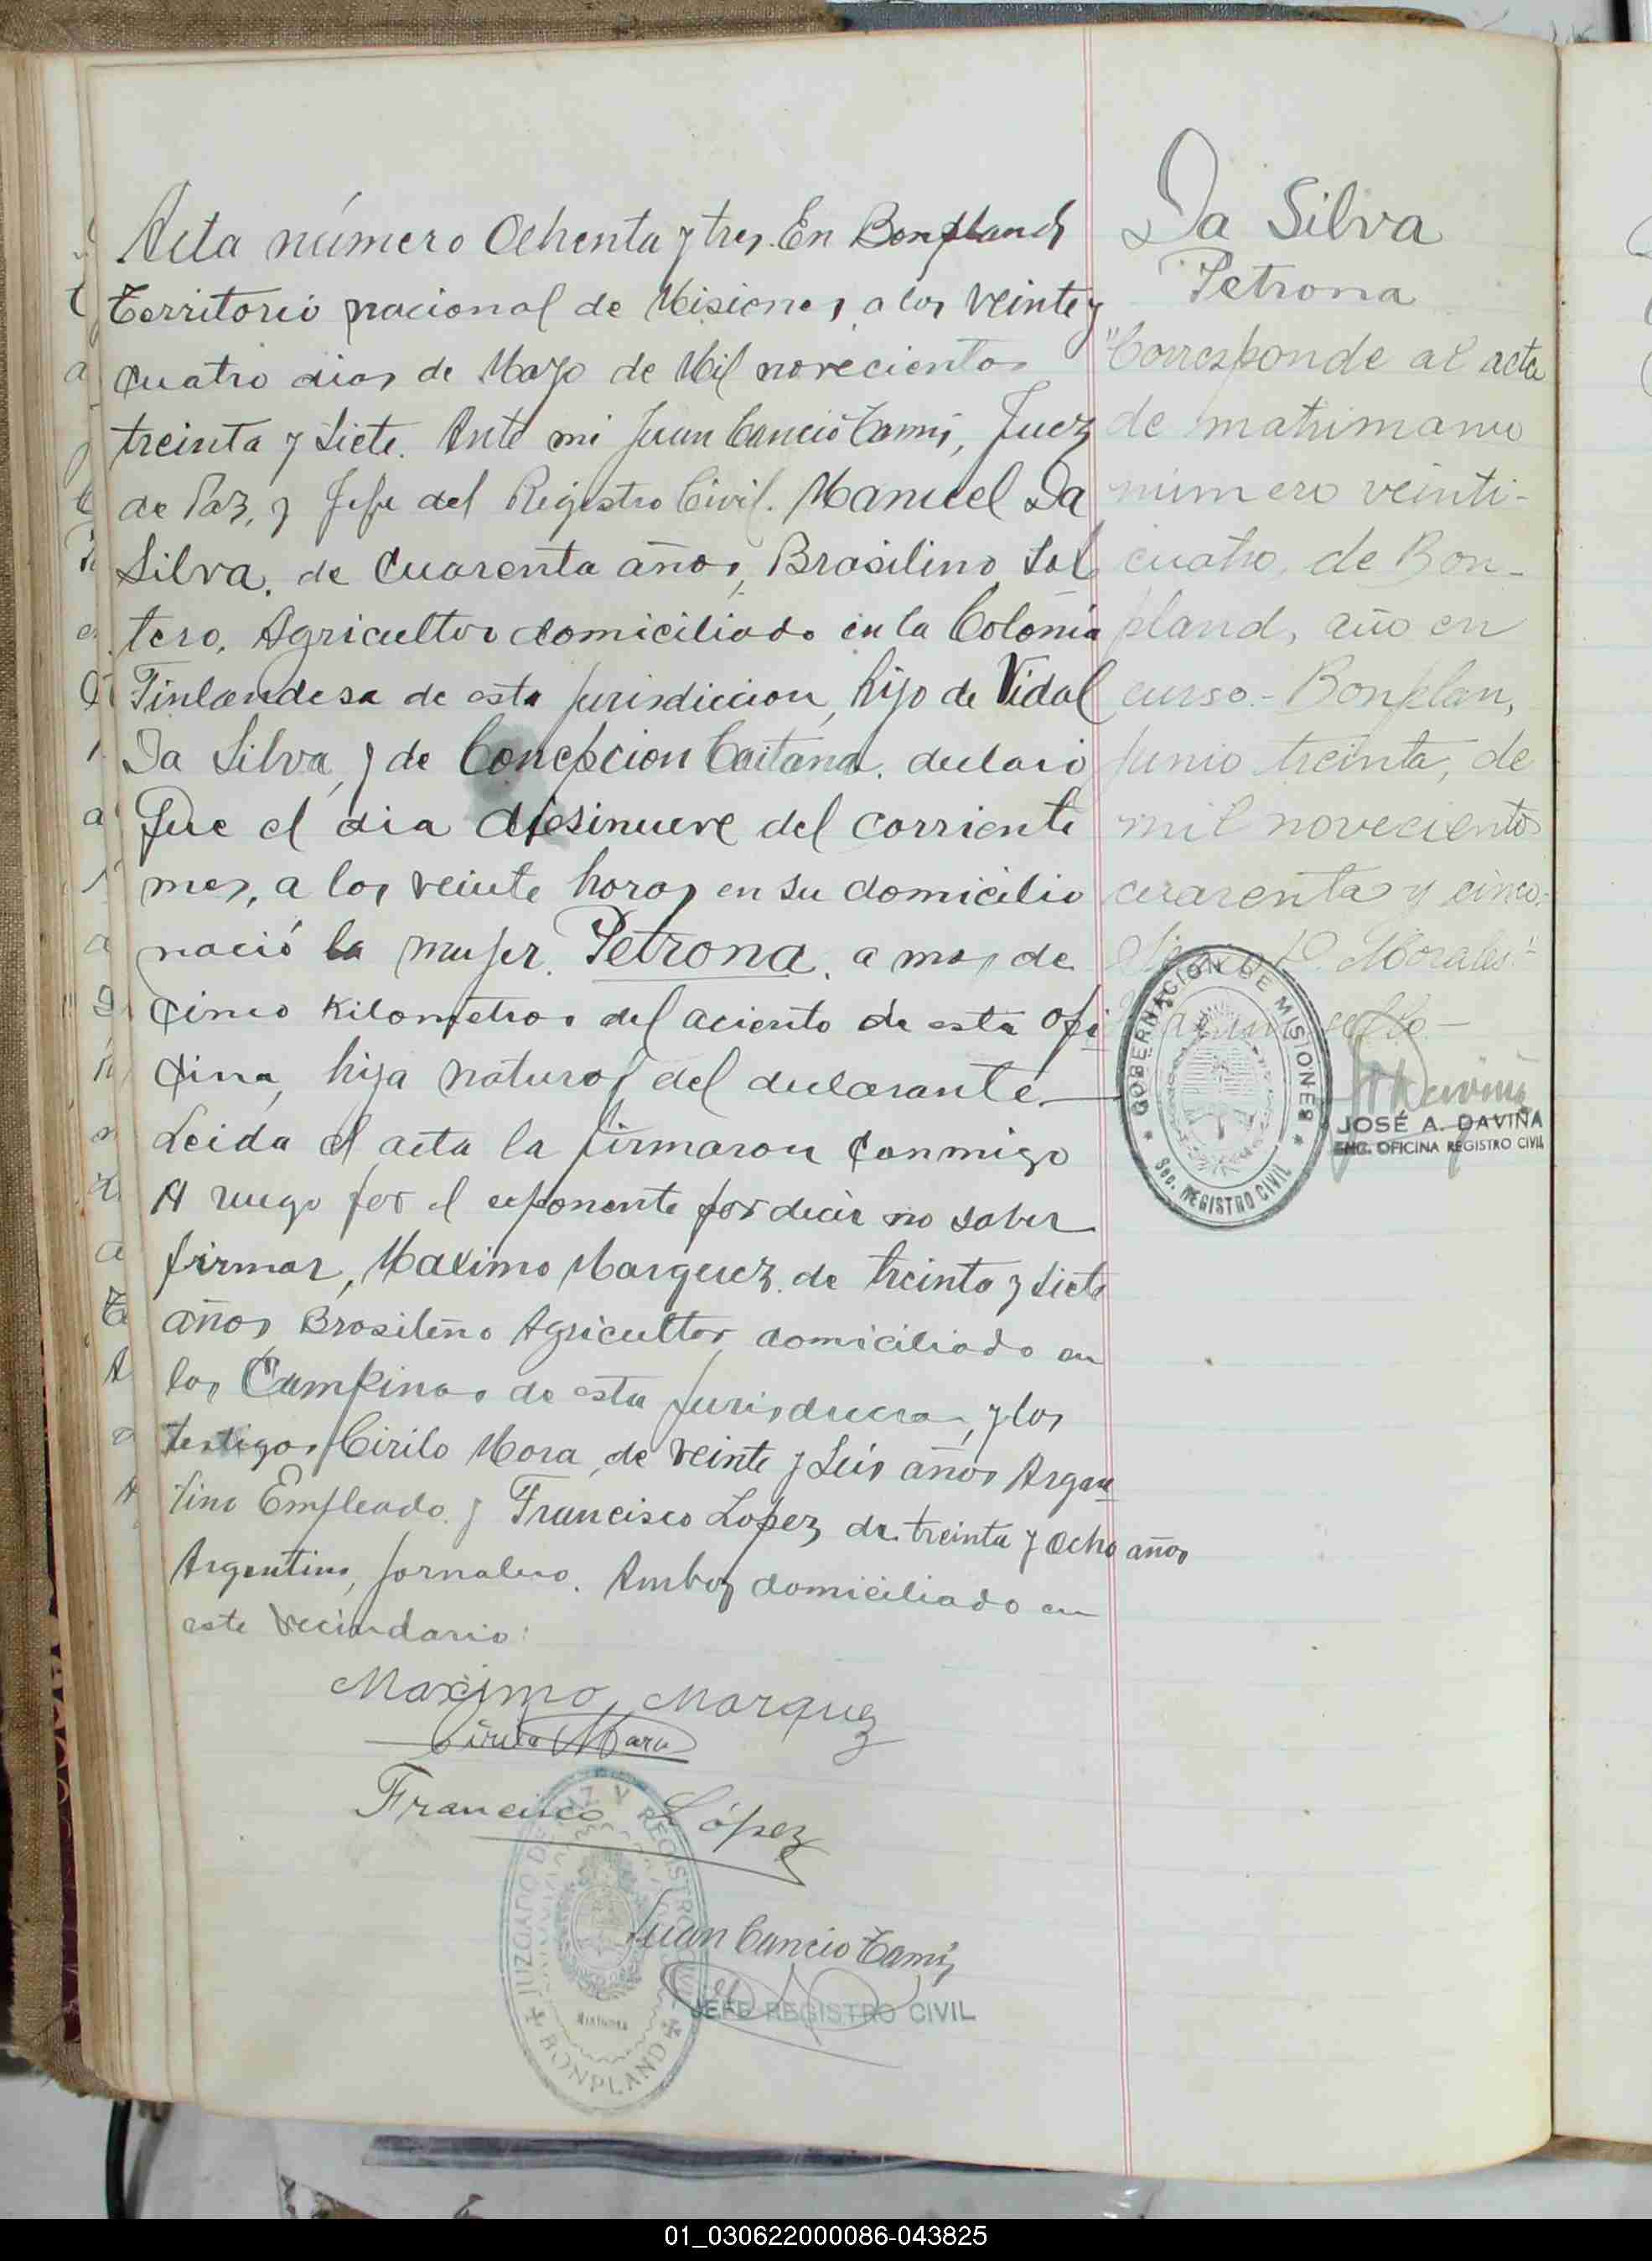 Acta número Ochenta y tres. En Bonpland
Territorio nacional de Misiones, a los veinte y
cuatro dias de Mayo de Mil novecientos
treinta y Siete. Ante mi Juan Cancio Tamis, Juez
de Paz, y Jefe del Registro Civil. Manuel Da
Silva, de Cuarenta años, Brasilino, Sol
tero, Agricultor domiciliado en la Colonia
Finlandesa de esta jurisdiccion, hijo de Vidal
Da Silva, y de Concepcion Caitana. declaró
Que el dia diesinueve del corriente
mes, a los veinte horas en su domicilio
nació la mujer. Petrona. a mas de
Cinco Kilometros del aciento de esta ofi
cina, hija natural del declarante.
Leida el acta la firmaron conmigo
A ruego por el exponente por decir no saber
firmar, Maximo Marquez de treinta y siete
años, Brasileño Agricultor domiciliado en
las Campinas de esta jurisdiccion, y los
testigos Cirilo Mora, de veinte y Seis años Argen
tino Empleado y Francisco Lopez, de treinta y ocho años
Argentino, jornalero. Ambos domiciliado en
este vecindario:
Maximo Marquez
Cirilo Mora
Francisco López
Juan Cancio Tamis
JEFE REGISTRO CIVIL
JUZGADO DE PAZ Y REGISTRO CIVIL
MISIONES
BONPLAND
Da Silva
Petrona
"Corresponde al acta
de matrimonio
número veinti-
cuatro, de Bon-
pland, año en
curso.- Bonplan,
junio treinta, de
mil novecientos
cuarenta y cinco.
P. Morales."
sello.-
GOBERNACIÓN DE MISIONES
Sec. REGISTRO CIVIL
JOSÉ A. DAVIÑA
ENC. OFICINA REGISTRO CIVIL
01_030622000086-043825